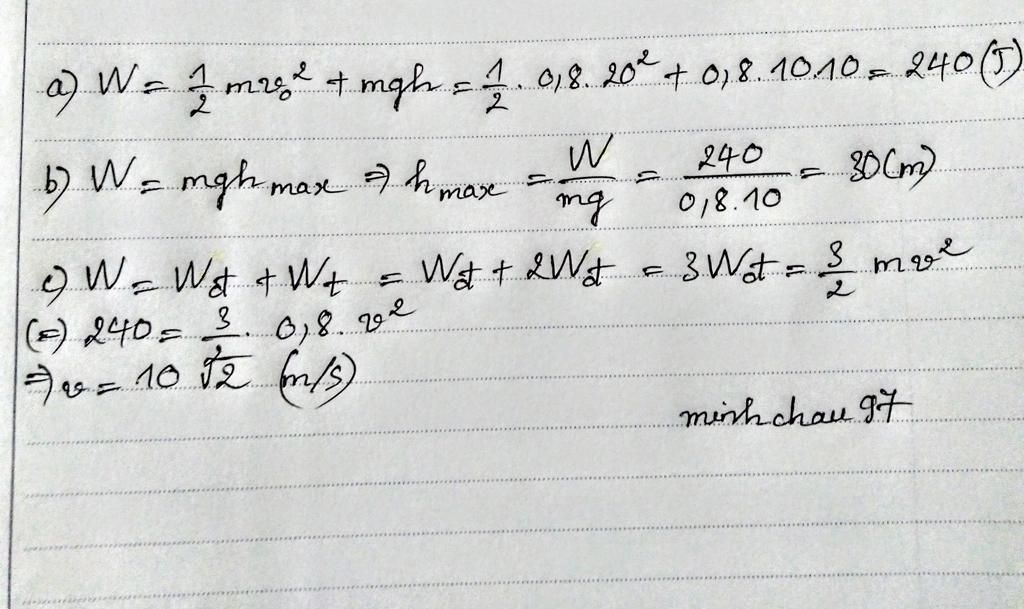 a) W = 1/2 mv₀² + mgh = 1/2 . 0,8. 20² + 0,8. 10.10 = 240 (J)
b) W = mgh max ⇒ h max = W/mg = 240/0,8.10 = 30 (m)
c) W = Wđ + Wt = Wđ + 2Wđ = 3Wđ = 3/2 mv²
(=) 240 = 3/2 . 0,8. v²
⇒ v = 10 √2 (m/s)
minhchau 97